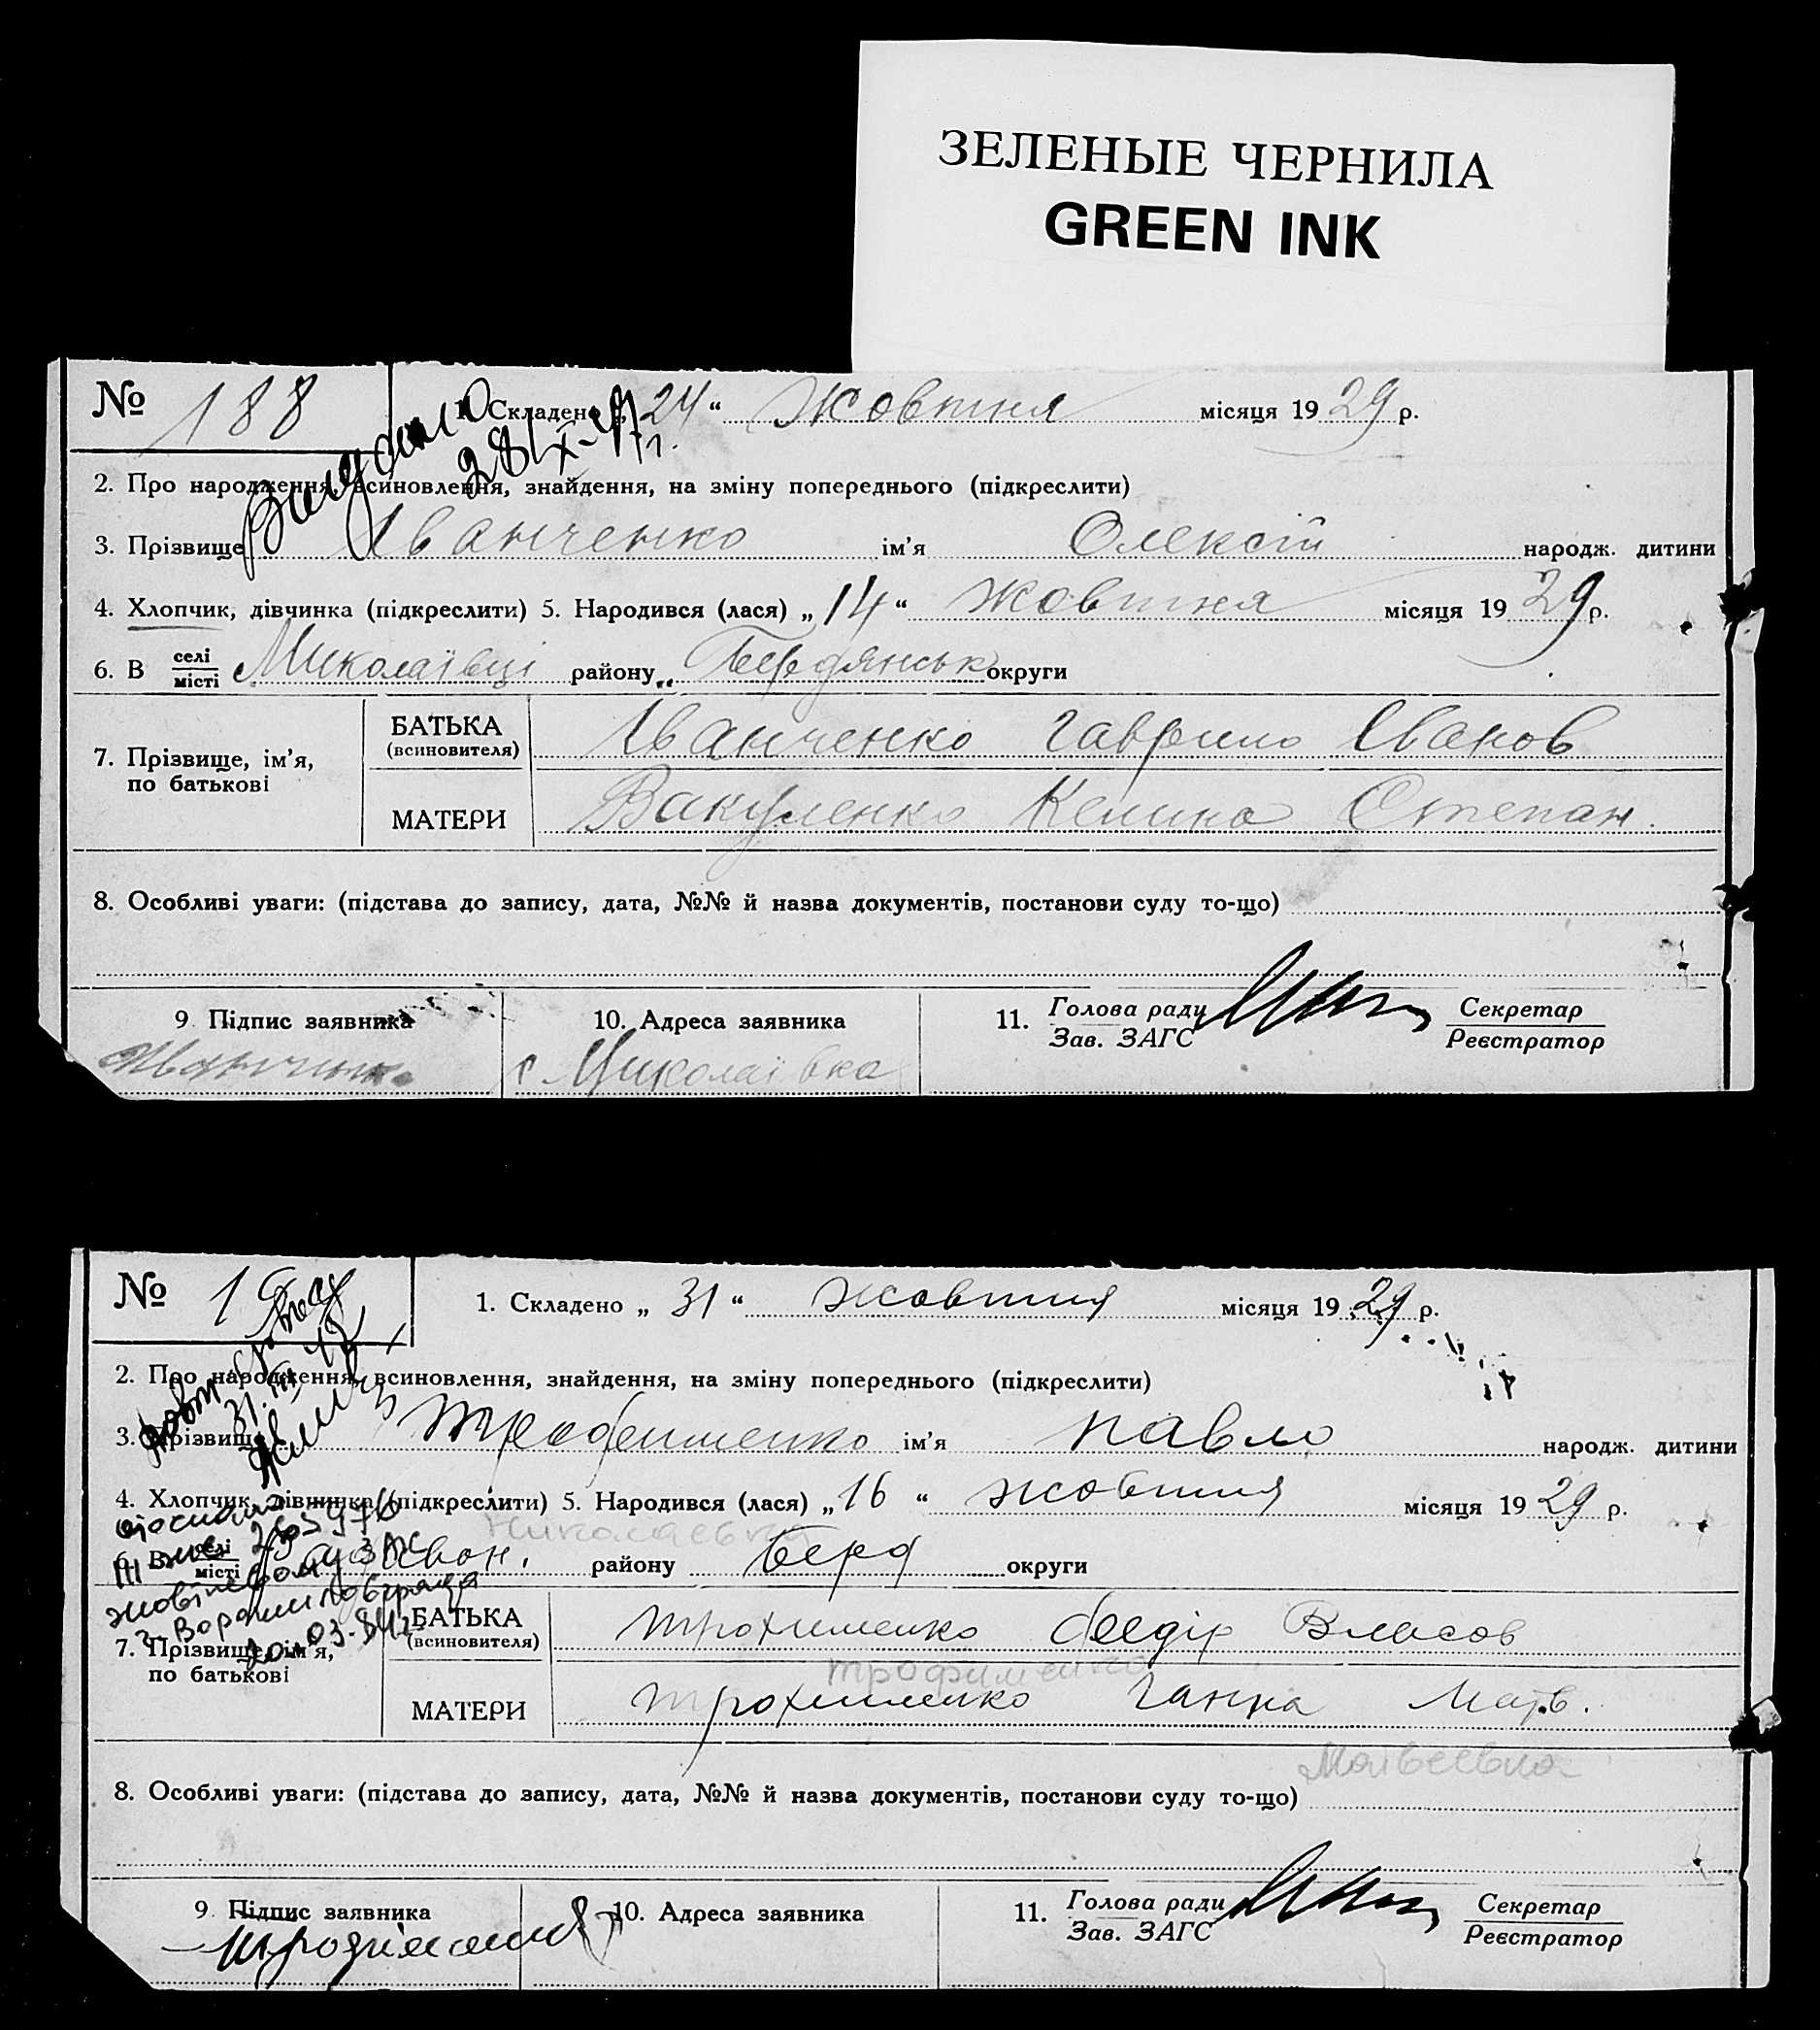 ЗЕЛЕНЫЕ ЧЕРНИЛА
GREEN INK
№ 188
1. Складено „ 24 “ Жовтня місяця 19 29 р.
28/X-47 г.
2. Про народження, всиновлення, знайдення, на зміну попереднього (підкреслити)
3. Прізвище Іванченко ім'я Олексій народж. дитини
4. Хлопчик, дівчинка (підкреслити) 5. Народився (лася) „ 14 “ жовтня місяця 19 29 р.
6. В селі місті Миколаївці району „ Бердянськ округи
7. Прізвище, ім'я, по батькові
БАТЬКА (всиновителя) Іванченко Гаврило Іванов
МАТЕРИ Вакуленко Келина Степан.
8. Особливі уваги: (підстава до запису, дата, №№ й назва документів, постанови суду то-що)
9 Підпис заявника
10. Адреса заявника
11. Голова ради Зав. ЗАГС
Секретар Реєстратор
с. Миколаївка
№
1. Складено „ 31 “ жовтня місяця 19 29 р.
2. Про народження, всиновлення, знайдення, на зміну попереднього (підкреслити)
3. Прізвище Трофименко ім'я Павло народж. дитини
4. Хлопчик, дівчинка (підкреслити) 5. Народився (лася) „ 16 “ жовтня місяця 19 29 р.
Николаевка
6. В селі місті району Берд округи
7. Прізвище, ім'я, по батькові
БАТЬКА (всиновителя) Трохименко Федір Власов
Трофименко
МАТЕРИ Трохименко Ганна Матв.
Матвеевна
8. Особливі уваги: (підстава до запису, дата, №№ й назва документів, постанови суду то-що)
9 Підпис заявника
10. Адреса заявника
11. Голова ради Зав. ЗАГС
Секретар Реєстратор